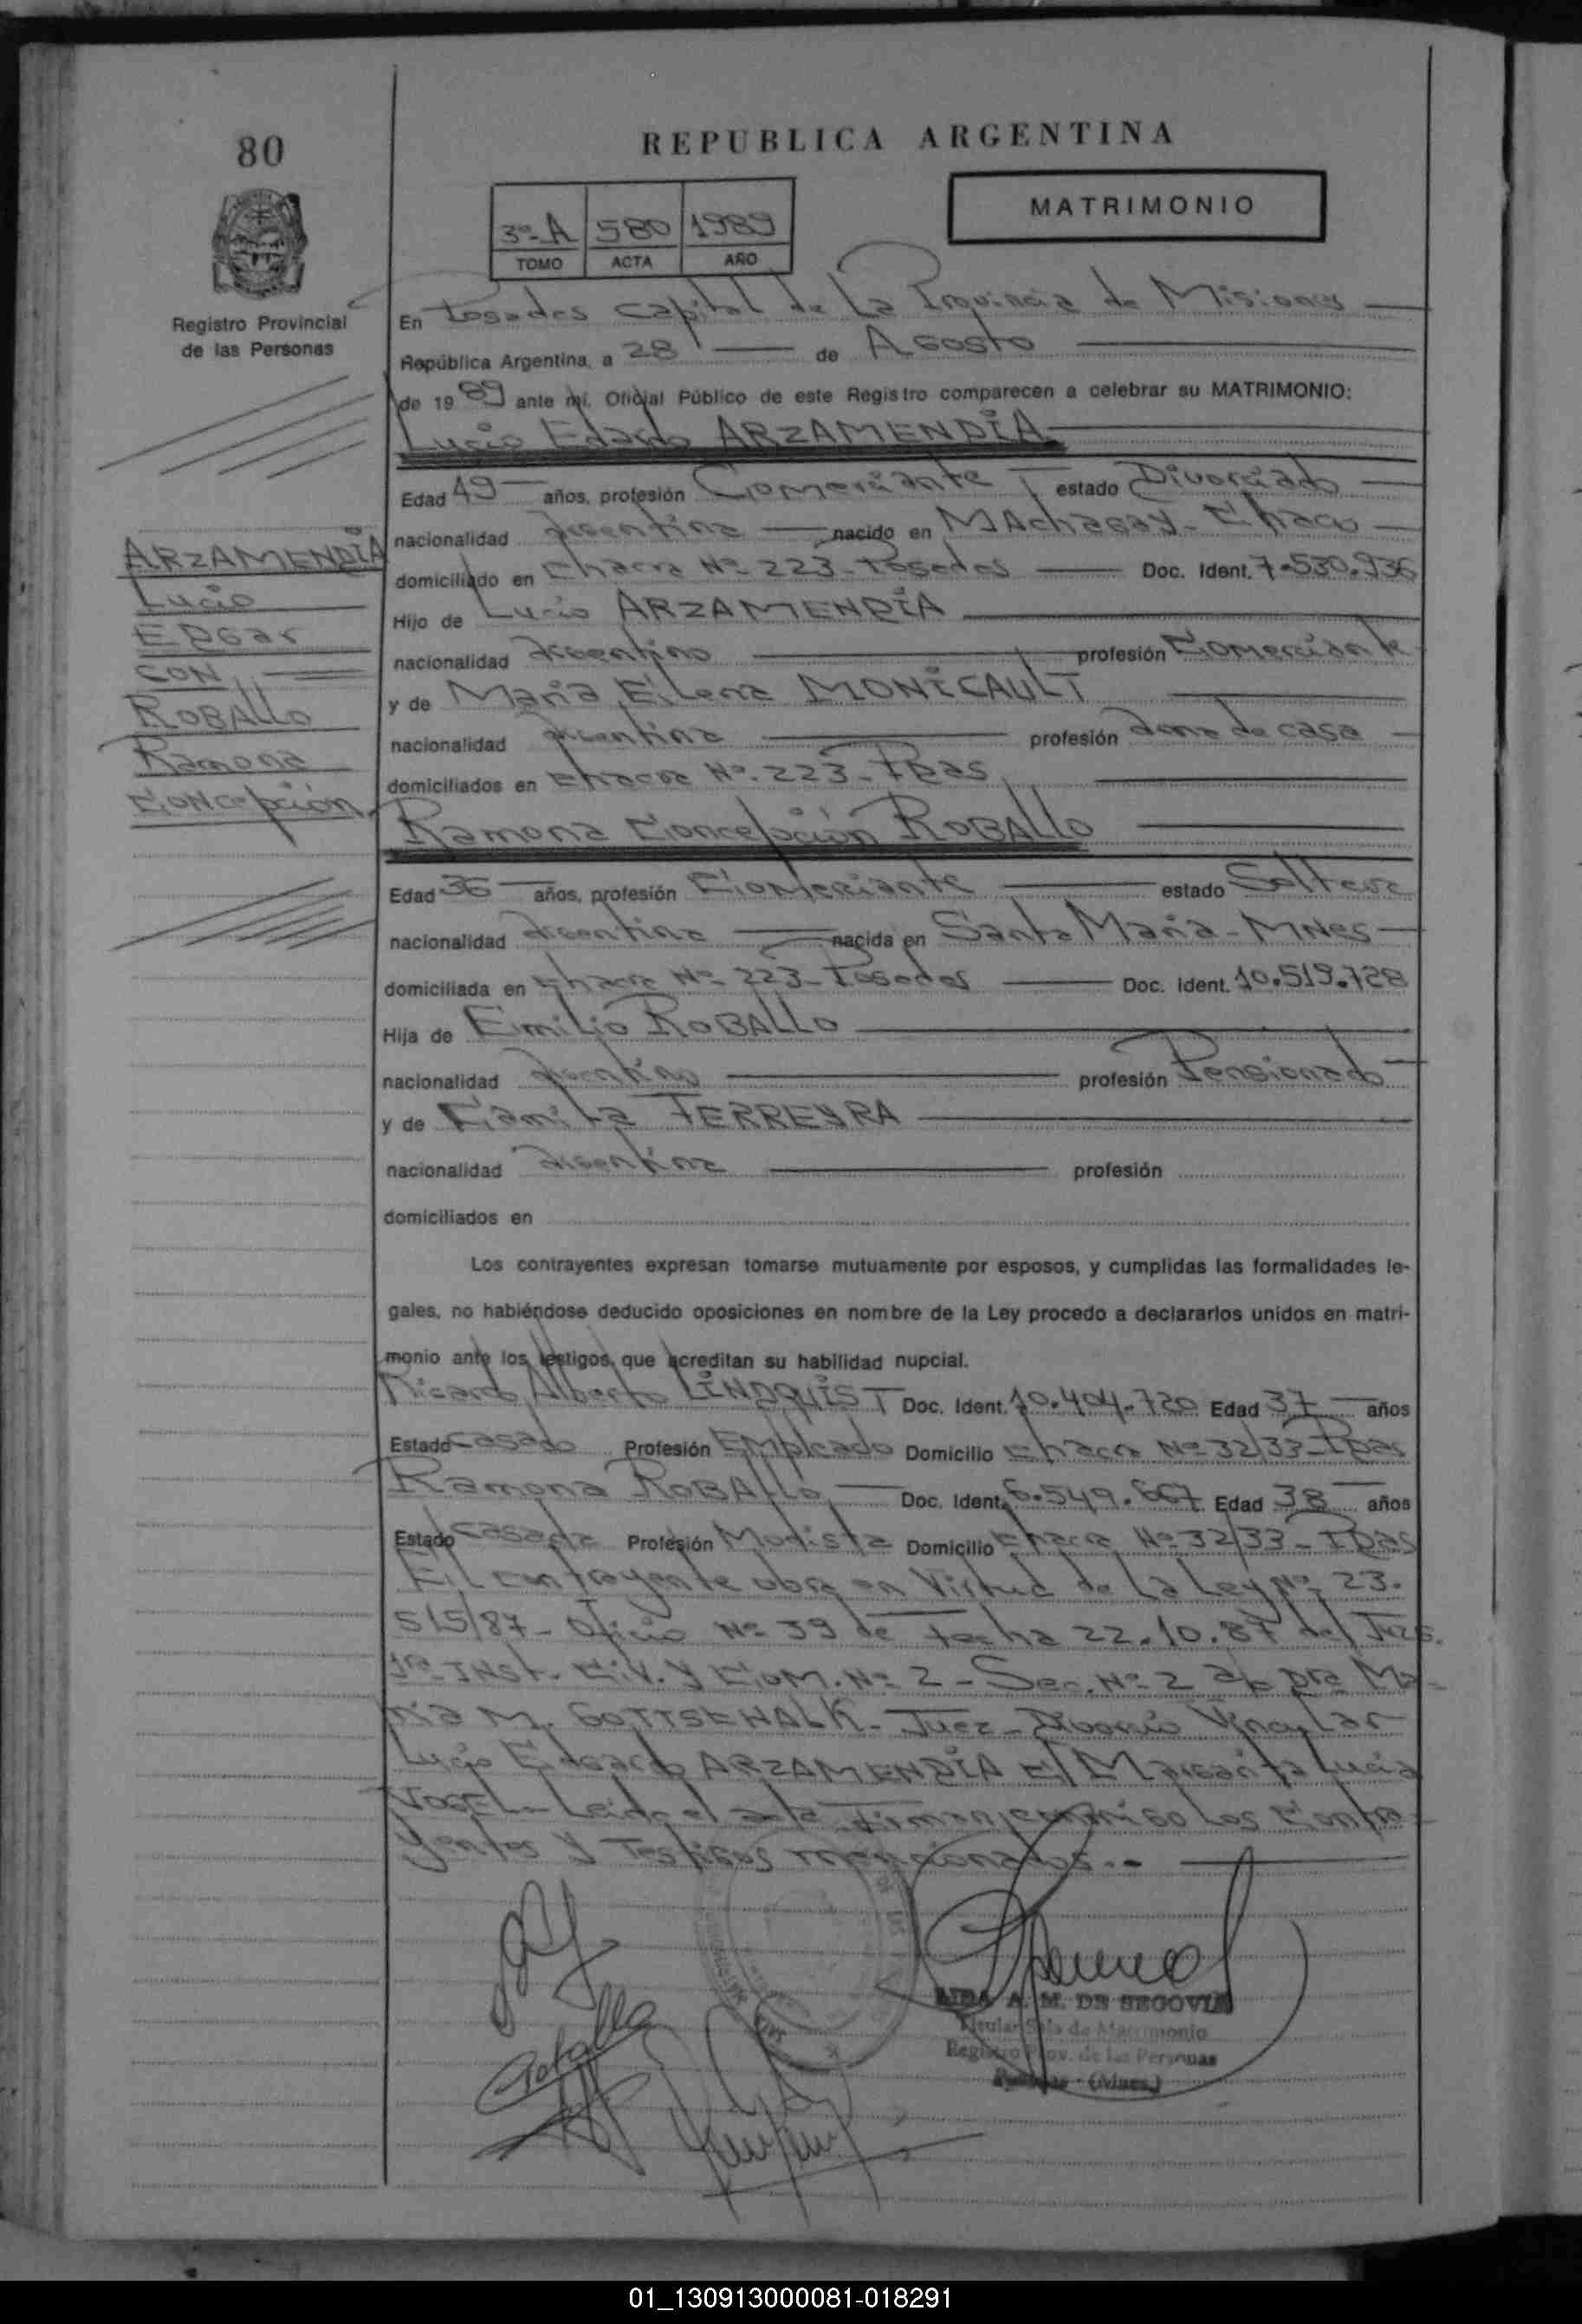 80
REPUBLICA ARGENTINA
MATRIMONIO
3º-A 580 1989
TOMO ACTA AÑO
Registro Provincial
de las Personas
En Posadas Capital de La Provincia de Misiones
República Argentina, a 28 de Agosto
de 1989 ante mí. Oficial Público de este Registro comparecen a celebrar su MATRIMONIO:
Lucio Edardo ARZAMENDIA
Edad 49 años, profesión Comerciante estado Divorciado
nacionalidad Argentina nacido en MAchagay - Chaco
domiciliado en Chacra Nº 223 - Posadas Doc. Ident. 7.530.936
Hijo de Lucio ARZAMENDIA
nacionalidad Argentino profesión Comerciante
y de Maria Elena MONICAULT
nacionalidad Argentina profesión Ama de casa
domiciliados en Chacra Nº. 223 - Pdas
ARZAMENDIA
Lucio
EDGar
CON
ROBALLO
Ramona
Concepción
Ramona Concepción ROBALLO
Edad 36 años, profesión Comerciante estado Soltera
nacionalidad Argentina nacida en Santa Maria - MNes
domiciliada en Chacra Nº 223 - Posadas Doc. Ident. 10.519.728
Hija de Emilio ROBALLO
nacionalidad Argentino profesión Pensionado
y de Camila FERREYRA
nacionalidad Argentina profesión
domiciliados en
Los contrayentes expresan tomarse mutuamente por esposos, y cumplidas las formalidades le-
gales, no habiéndose deducido oposiciones en nombre de la Ley procedo a declararlos unidos en matri-
monio ante los testigos, que acreditan su habilidad nupcial.
Ricardo Alberto LINDQUIST Doc. Ident. 10.404.720 Edad 37 años
Estado Casado Profesión Empleado Domicilio Chacra Nº 32/33 - Pdas
Ramona ROBALLO Doc. Ident. 6.549.667 Edad 38 años
Estado Casada Profesión Modista Domicilio Chacra Nº 32/33 - Pdas
El contrayente obra en Virtud de La Ley Nº 23.
515/87 - Oficio Nº 39 de fecha 22.10.87 del Juzg.
1ra INst. Civ. y Com. Nº 2 - Sec. Nº 2 a/c Dra Ma-
ria M. GOTTSCHALK - Juez - Divorcio Vincular
Lucio Edgardo ARZAMENDIA C/ Margarita Lucia
VOGEL - Leida el acta Firman conmigo Los Contra-
yentes y Testigos mencionados.-
LIDA A. M. DE SEGOVIA
Titular Sala de Matrimonio
Registro Prov. de las Personas
Posadas - (Mnes.)
01_130913000081-018291